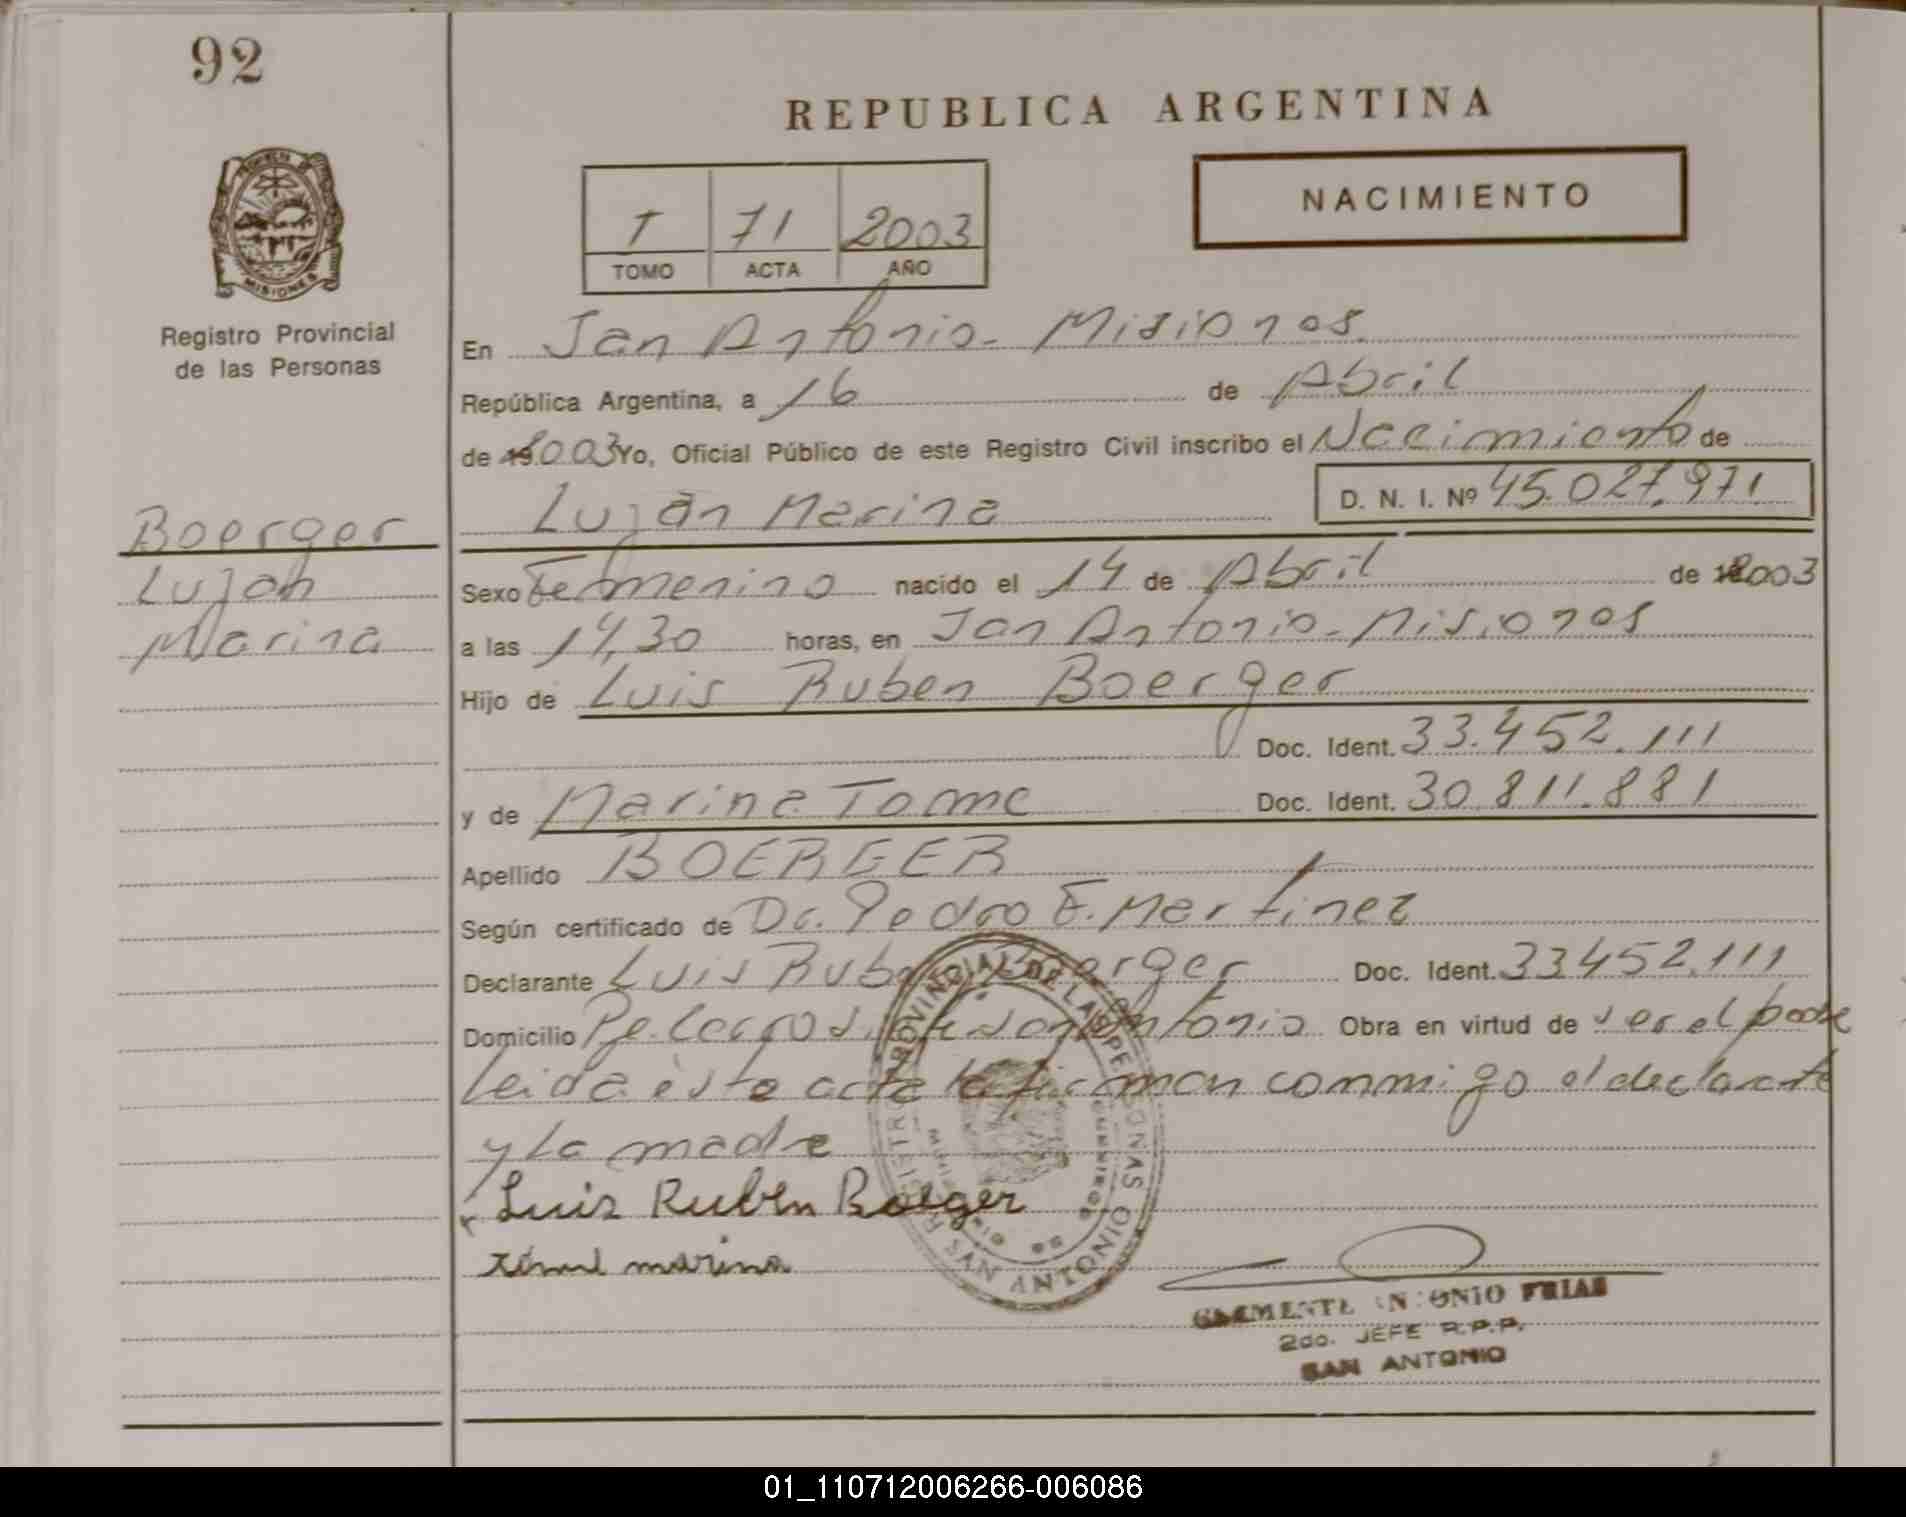 92
REPUBLICA ARGENTINA
NACIMIENTO
T 71 2003
TOMO ACTA AÑO
MISIONES
Registro Provincial
de las Personas
En San Antonio - Misiones
República Argentina, a 16 de Abril
de 2003 Yo, Oficial Público de este Registro Civil inscribo el Nacimiento de
Luján Marina D. N. I. Nº 45.027.971
Boerger
Luján
Marina
Sexo Femenino nacido el 14 de Abril de 2003
a las 14,30 horas, en San Antonio - Misiones
Hijo de Luis Ruben Boerger
Doc. Ident. 33.452.111
y de Marina Tome Doc. Ident. 30.811.881
Apellido BOERGER
Según certificado de Dr. Pedro F. Martinez
Declarante Luis Ruben Boerger Doc. Ident. 33452.111
Domicilio San Antonio Obra en virtud de ser el padre
Leida ésta acta la firman conmigo el declarante
y la madre
Luis Ruben Boerger
marina
REGISTRO PROVINCIAL DE LAS PERSONAS
SAN ANTONIO
ANTONIO FRIAS
2do. JEFE R.P.P.
SAN ANTONIO
01_110712006266-006086